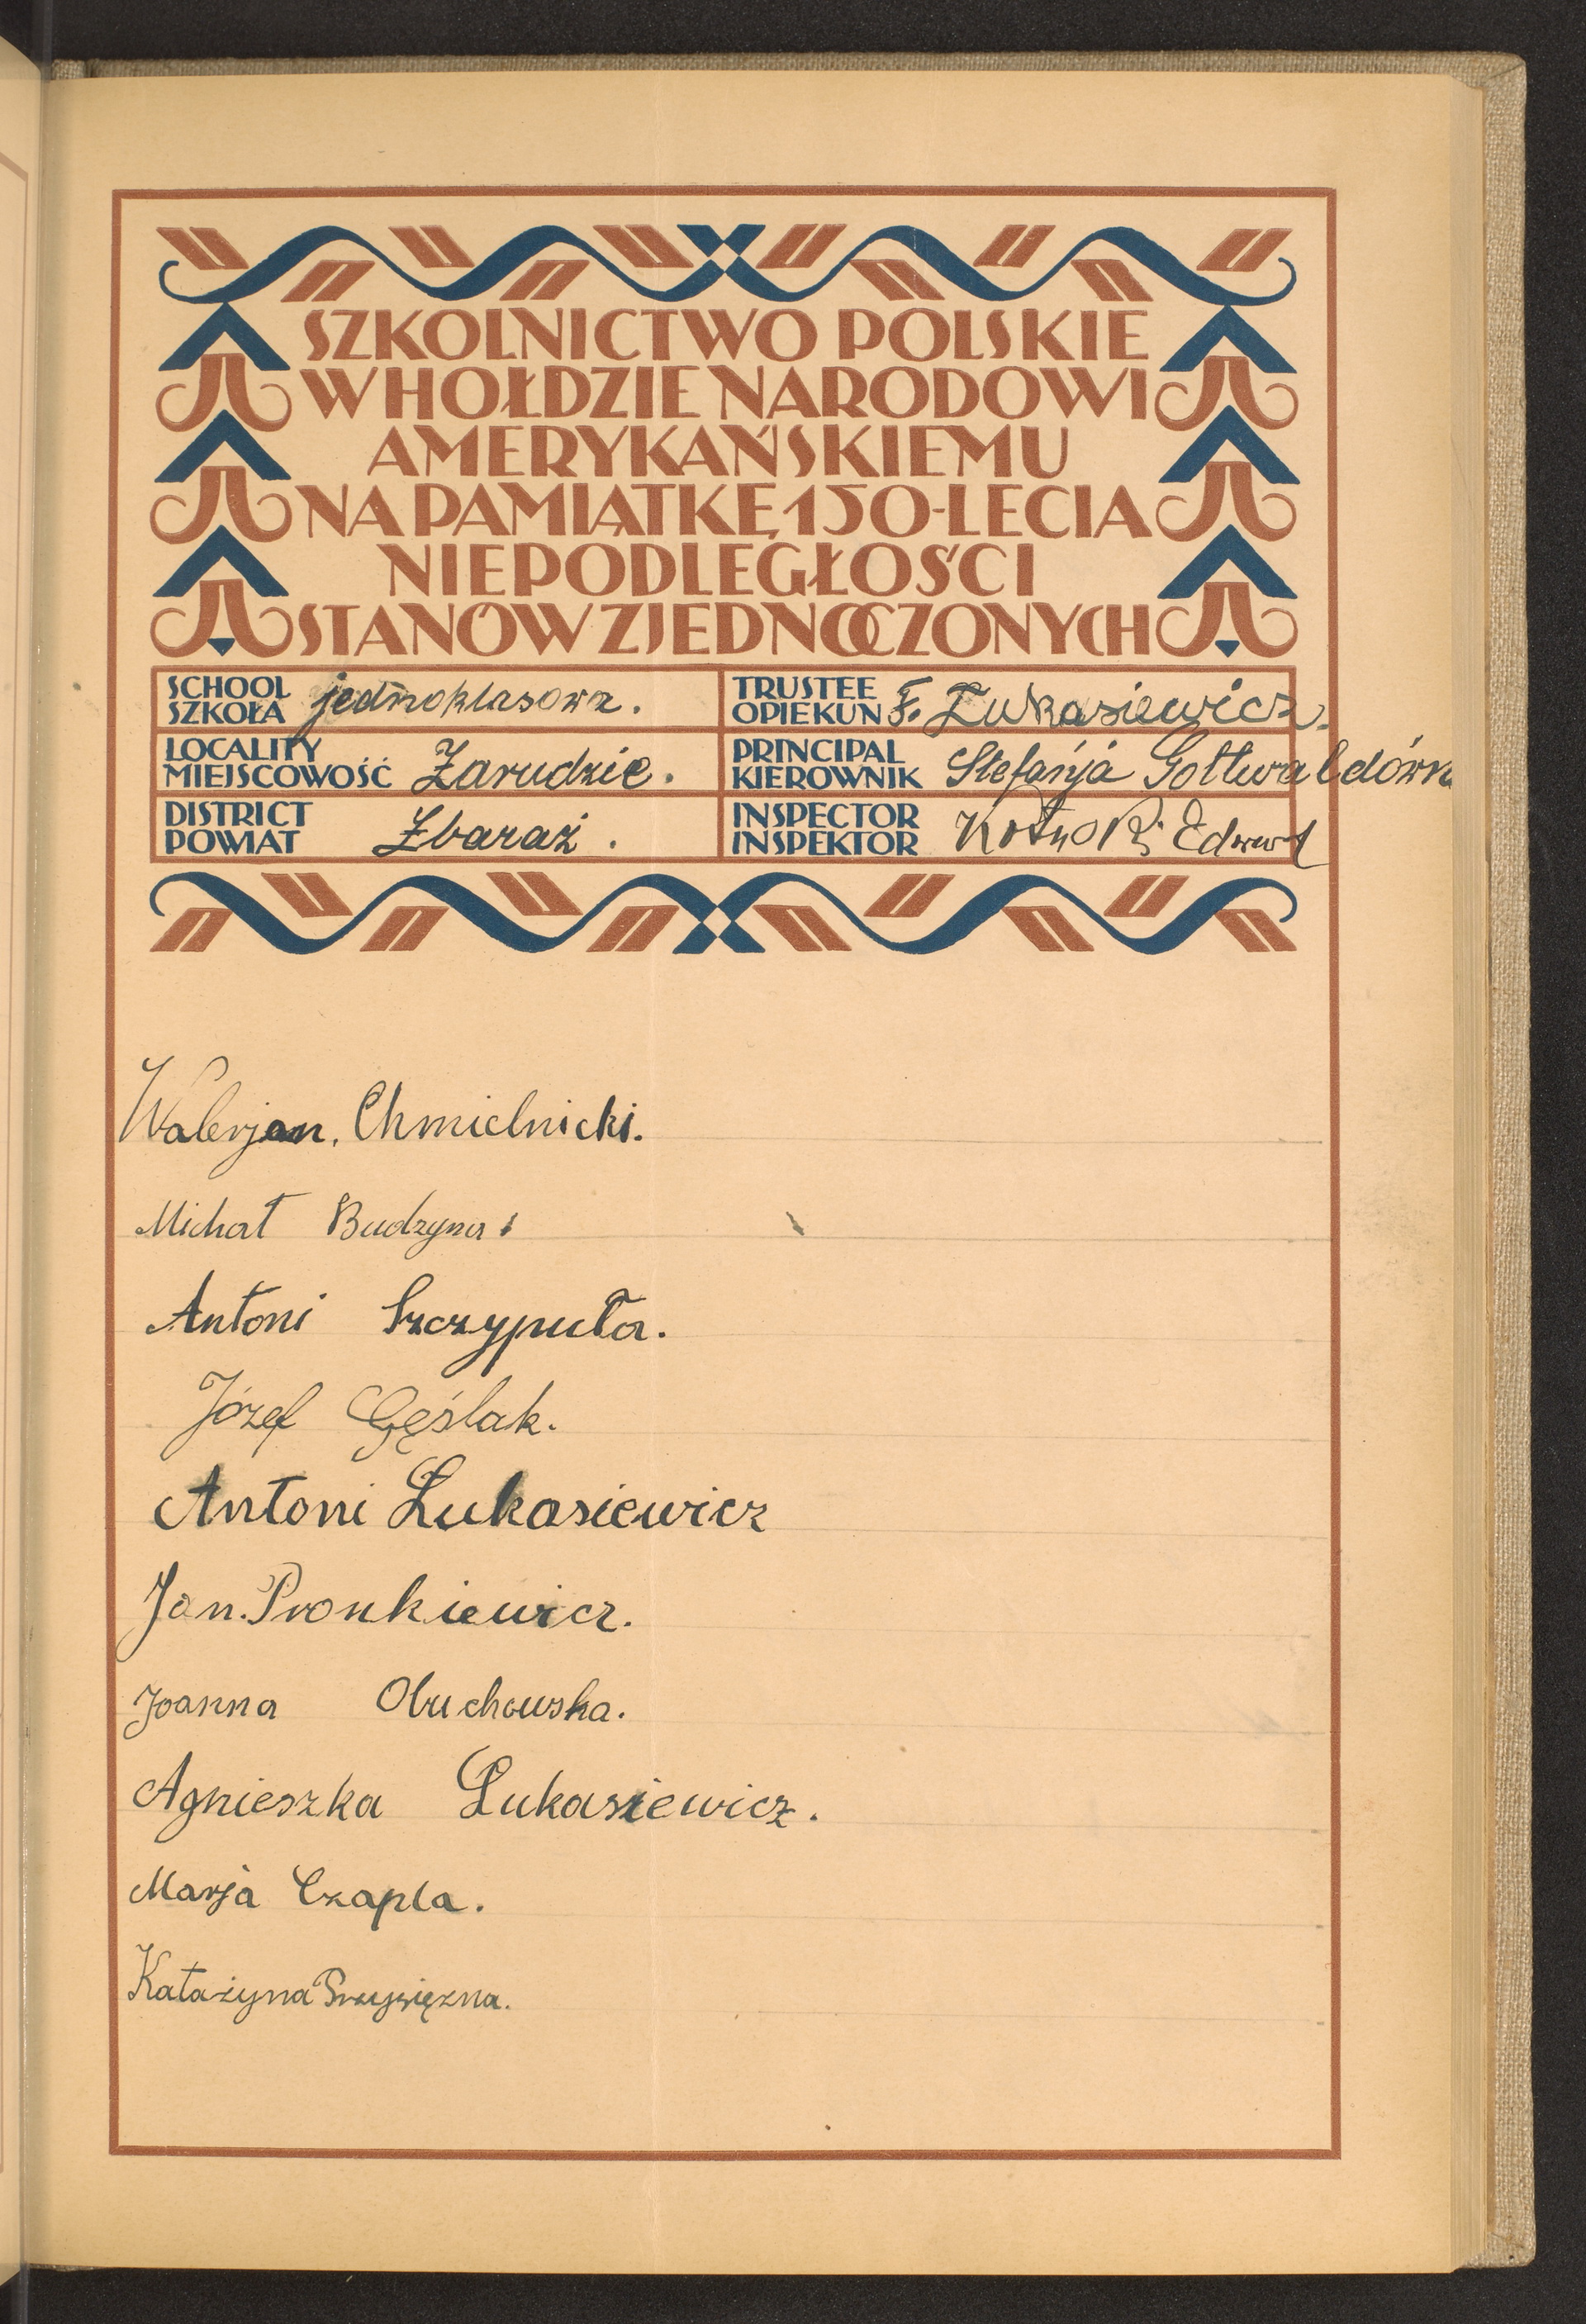 SZKOLNICTWO POLSKIE
W HOŁDZIE NARODOWI
AMERYKAŃSKIEMU
NA PAMIĄTKĘ 150-LECIA
NIEPODLEGŁOŚCI
STANÓW ZJEDNOCZONYCH
SCHOOL
SZKOŁA jednoklasowa.
TRUSTEE
OPIEKUN F. Łukasiewicz.
LOCALITY
MIEJSCOWOŚĆ Zarudzie.
PRINCIPAL
KIEROWNIK Stefanja Gottwaldówna
DISTRICT
POWIAT Zbaraż.
INSPECTOR
INSPEKTOR Edward
Walerjan. Chmielnicki.
Michał Budzyna.
Antoni Szczyputa.
Józef Gęślak.
Antoni Łukasiewicz
Jan. Pronkiewicz.
Joanna Obuchowska.
Agnieszka Łukasiewicz.
Marja Czapla.
Katażyna